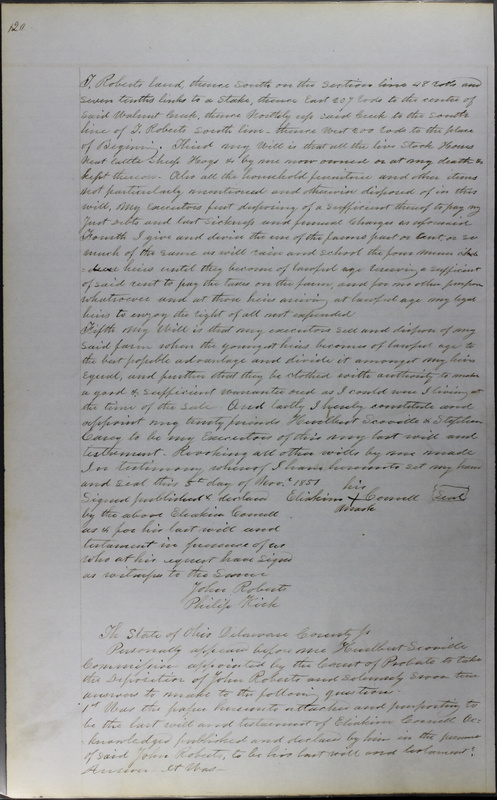 120
T. Roberts land, thence South on the Section line 48 rods and
seven tenths links to a Stake, thence East 207 rods to the centre of
Said Walnut Creek, thence Northly up said Creek to the South
line of T. Roberts South line thence West 200 rods to the place
of Begining. Third my Will is that all the live Stock Horses
Neat cattle Sheep Hogs & by me now owned or at my death &
kept thereon. Also all the household furniture and other items
not particularly mentioned and otherwise disposed of in this
will, My Executors first disposing of a Sufficient thereof to pay my
Just debts and last Sickness and funeral Charges as aforesaid
Fourth I give and devise the use of the farm part or rent or so
much of the same as will raise and school the four minor
heirs until they become of lawful age reserving a sufficient
of said rent to pay the taxes on the farm, and for no other purpose
whatsoever and at those heirs arriving at lawful age my legal
heirs to enjoy the right of all not expended
Fifth My Will is that my executors sell and dispose of my
said farm when the youngest heirs becomes of lawful age to
the best possible advantage and divide it amongst my heirs
Equal, and further that they be clothed with authority to make
a good & Sufficient warrantee deed as I could were I living at
the time of the Sale. And lastly I hereby constitute and
appoint my trusty friends Hurlbert Scoville & Stephen
Carey to be my Executors of this my last will and
testtement. Revoking all other wills by me made
In testimony whereof I have hereunto set my hand
and Seal this 5th day of Nov. 1851 his
Signed published & declared Eliakim X Cornell Seal
by the above Eleakim Cornell mark
as & for his last will and
testament in presence of us
who at his request have Signed
as witness to the Same
John Roberts
Philip Fish
The State of Ohio Delaware County Ss
Personally appeared before me Hurlbert Scoville
Commissioner appointed by the Court of Probate to take
the Deposition of John Roberts and Solemnly Sworn true
answers to make to the following questions
1st Was the paper hereunto attached and purporting to
be the last will and testament of Eliakim Cornell Ac-
knowledged published and declared by him in the presence
of said John Roberts, to be his last will and testament?
Answer. It Was-